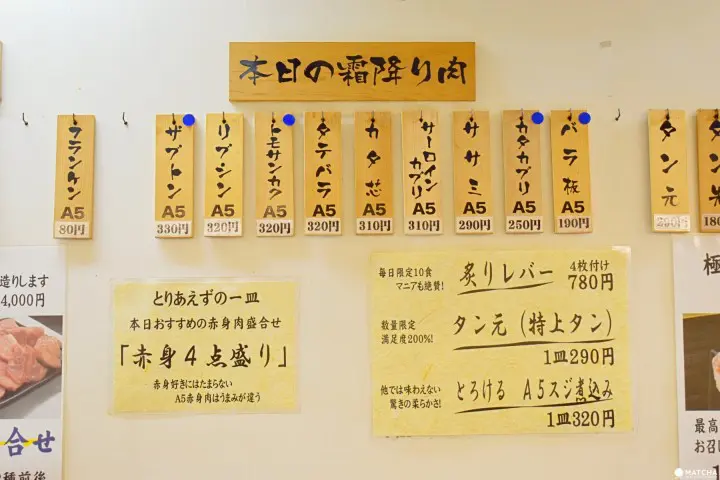 本日の霜降り肉
フランケン
A5
80円
ザブトン
A5
330円
リブシン
A5
320円
トモサンカク
A5
320円
タテバラ
A5
320円
カタ芯
A5
310円
サーロイン
カブリ
A5
310円
ササミ
A5
290円
カタカブリ
A5
250円
バラ板
A5
190円
タン元
タン先
180
造りします
4,000円
合せ
種前後
とりあえずの一皿
本日おすすめの赤身肉盛合せ
「赤身4点盛り」
赤身好きにはたまらない
A5赤身肉はうまみが違う
毎日限定10食
マニアも絶賛!
炙りレバー
4枚付け
780円
数量限定
満足度200%!
タン元(特上タン)
1皿290円
他では味わえない
驚きの柔らかさ!
とろける A5スジ煮込み
1皿320円
極
最高
お召し
MATCHA